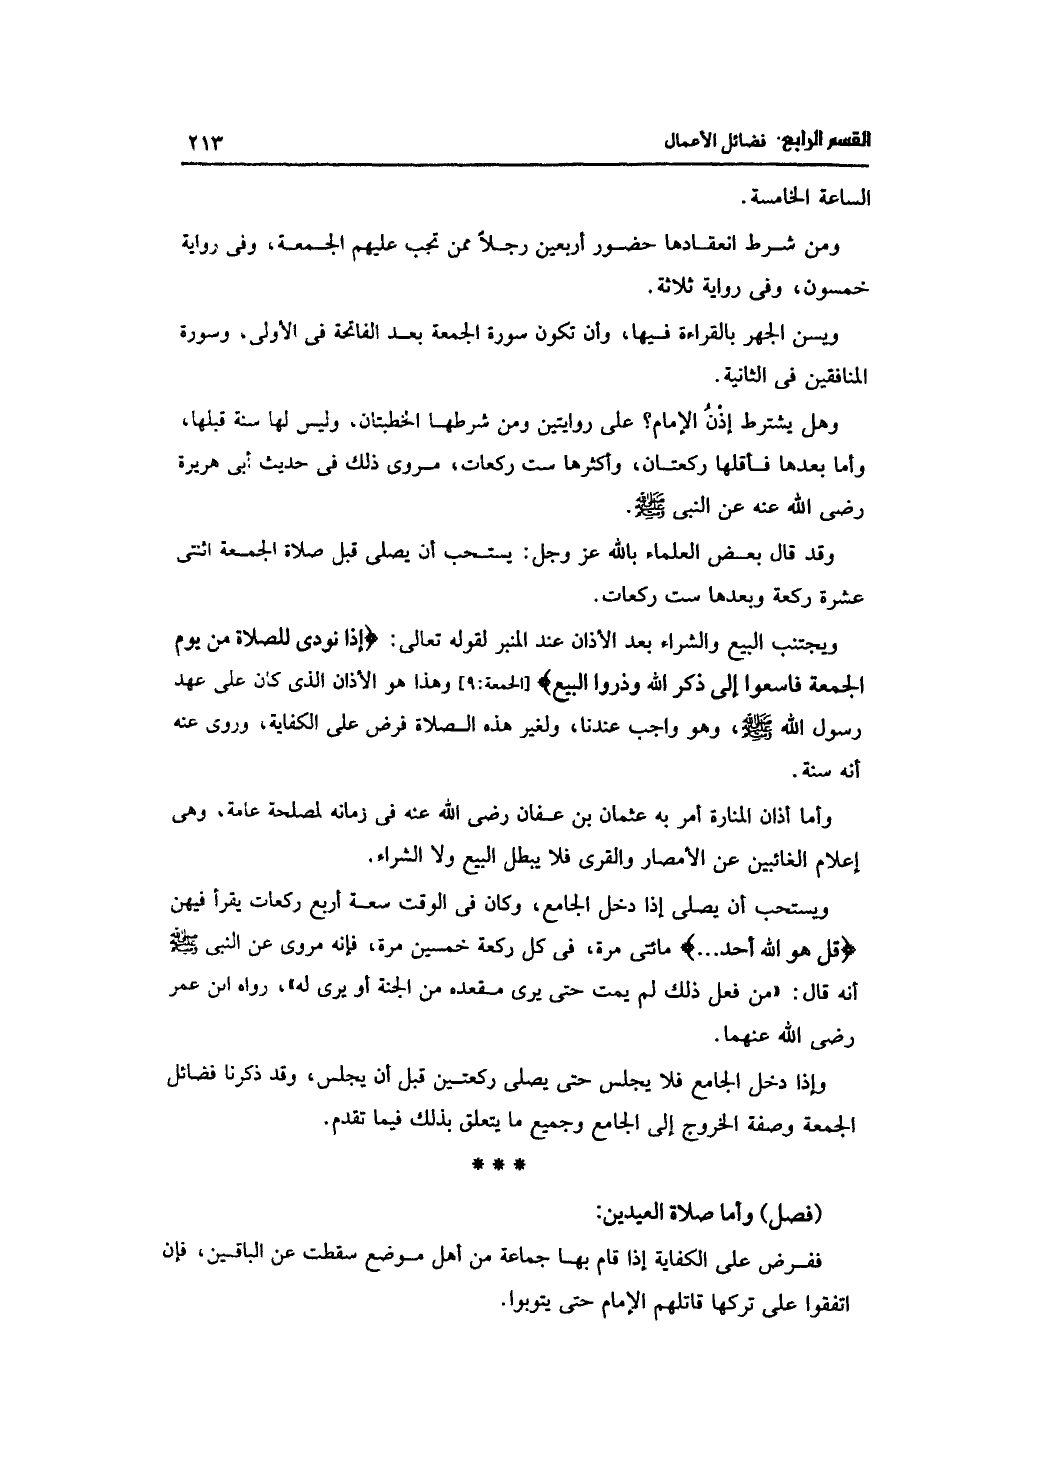 القسم الرابع· فضائل الأعمال ٢١٣
الساعة الخامسة.
ومن شرط انعقادها حضور أربعين رجلاً ممن تجب عليهم الجمعة، وفى رواية
خمسون، وفى رواية ثلاثة.
ويسن الجهر بالقراءة فيها، وأن تكون سورة الجمعة بعد الفاتحة فى الأولى، وسورة
المنافقين فى الثانية.
وهل يشترط إذْنُ الإمام؟ على روايتين ومن شرطها الخطبتان، وليس لها سنة قبلها،
وأما بعدها فأقلها ركعتان، وأكثرها ست ركعات، مروى ذلك فى حديث أبى هريرة
رضى الله عنه عن النبى ﷺ.
وقد قال بعض العلماء بالله عز وجل: يستحب أن يصلى قبل صلاة الجمعة اثنتى
عشرة ركعة وبعدها ست ركعات.
ويجتنب البيع والشراء بعد الأذان عند المنبر لقوله تعالى: ﴿إذا نودى للصلاة من يوم
الجمعة فاسعوا إلى ذكر الله وذروا البيع﴾ [الجمعة:٩] وهذا هو الأذان الذى كان على عهد
رسول الله ﷺ، وهو واجب عندنا، ولغير هذه الصلاة فرض على الكفاية، وروى عنه
أنه سنة.
وأما أذان المنارة أمر به عثمان بن عفان رضى الله عنه فى زمانه لمصلحة عامة، وهى
إعلام الغائبين عن الأمصار والقرى فلا يبطل البيع ولا الشراء.
ويستحب أن يصلى إذا دخل الجامع، وكان فى الوقت سعة أربع ركعات يقرأ فيهن
﴿قل هو الله أحد...﴾ مائتى مرة، فى كل ركعة خمسين مرة، فإنه مروى عن النبى ﷺ
أنه قال: «من فعل ذلك لم يمت حتى يرى مقعده من الجنة أو يرى له»، رواه ابن عمر
رضى الله عنهما.
وإذا دخل الجامع فلا يجلس حتى يصلى ركعتين قبل أن يجلس، وقد ذكرنا فضائل
الجمعة وصفة الخروج إلى الجامع وجميع ما يتعلق بذلك فيما تقدم.
* * *
(فصل) وأما صلاة العيدين:
ففرض على الكفاية إذا قام بها جماعة من أهل موضع سقطت عن الباقين، فإن
اتفقوا على تركها قاتلهم الإمام حتى يتوبوا.